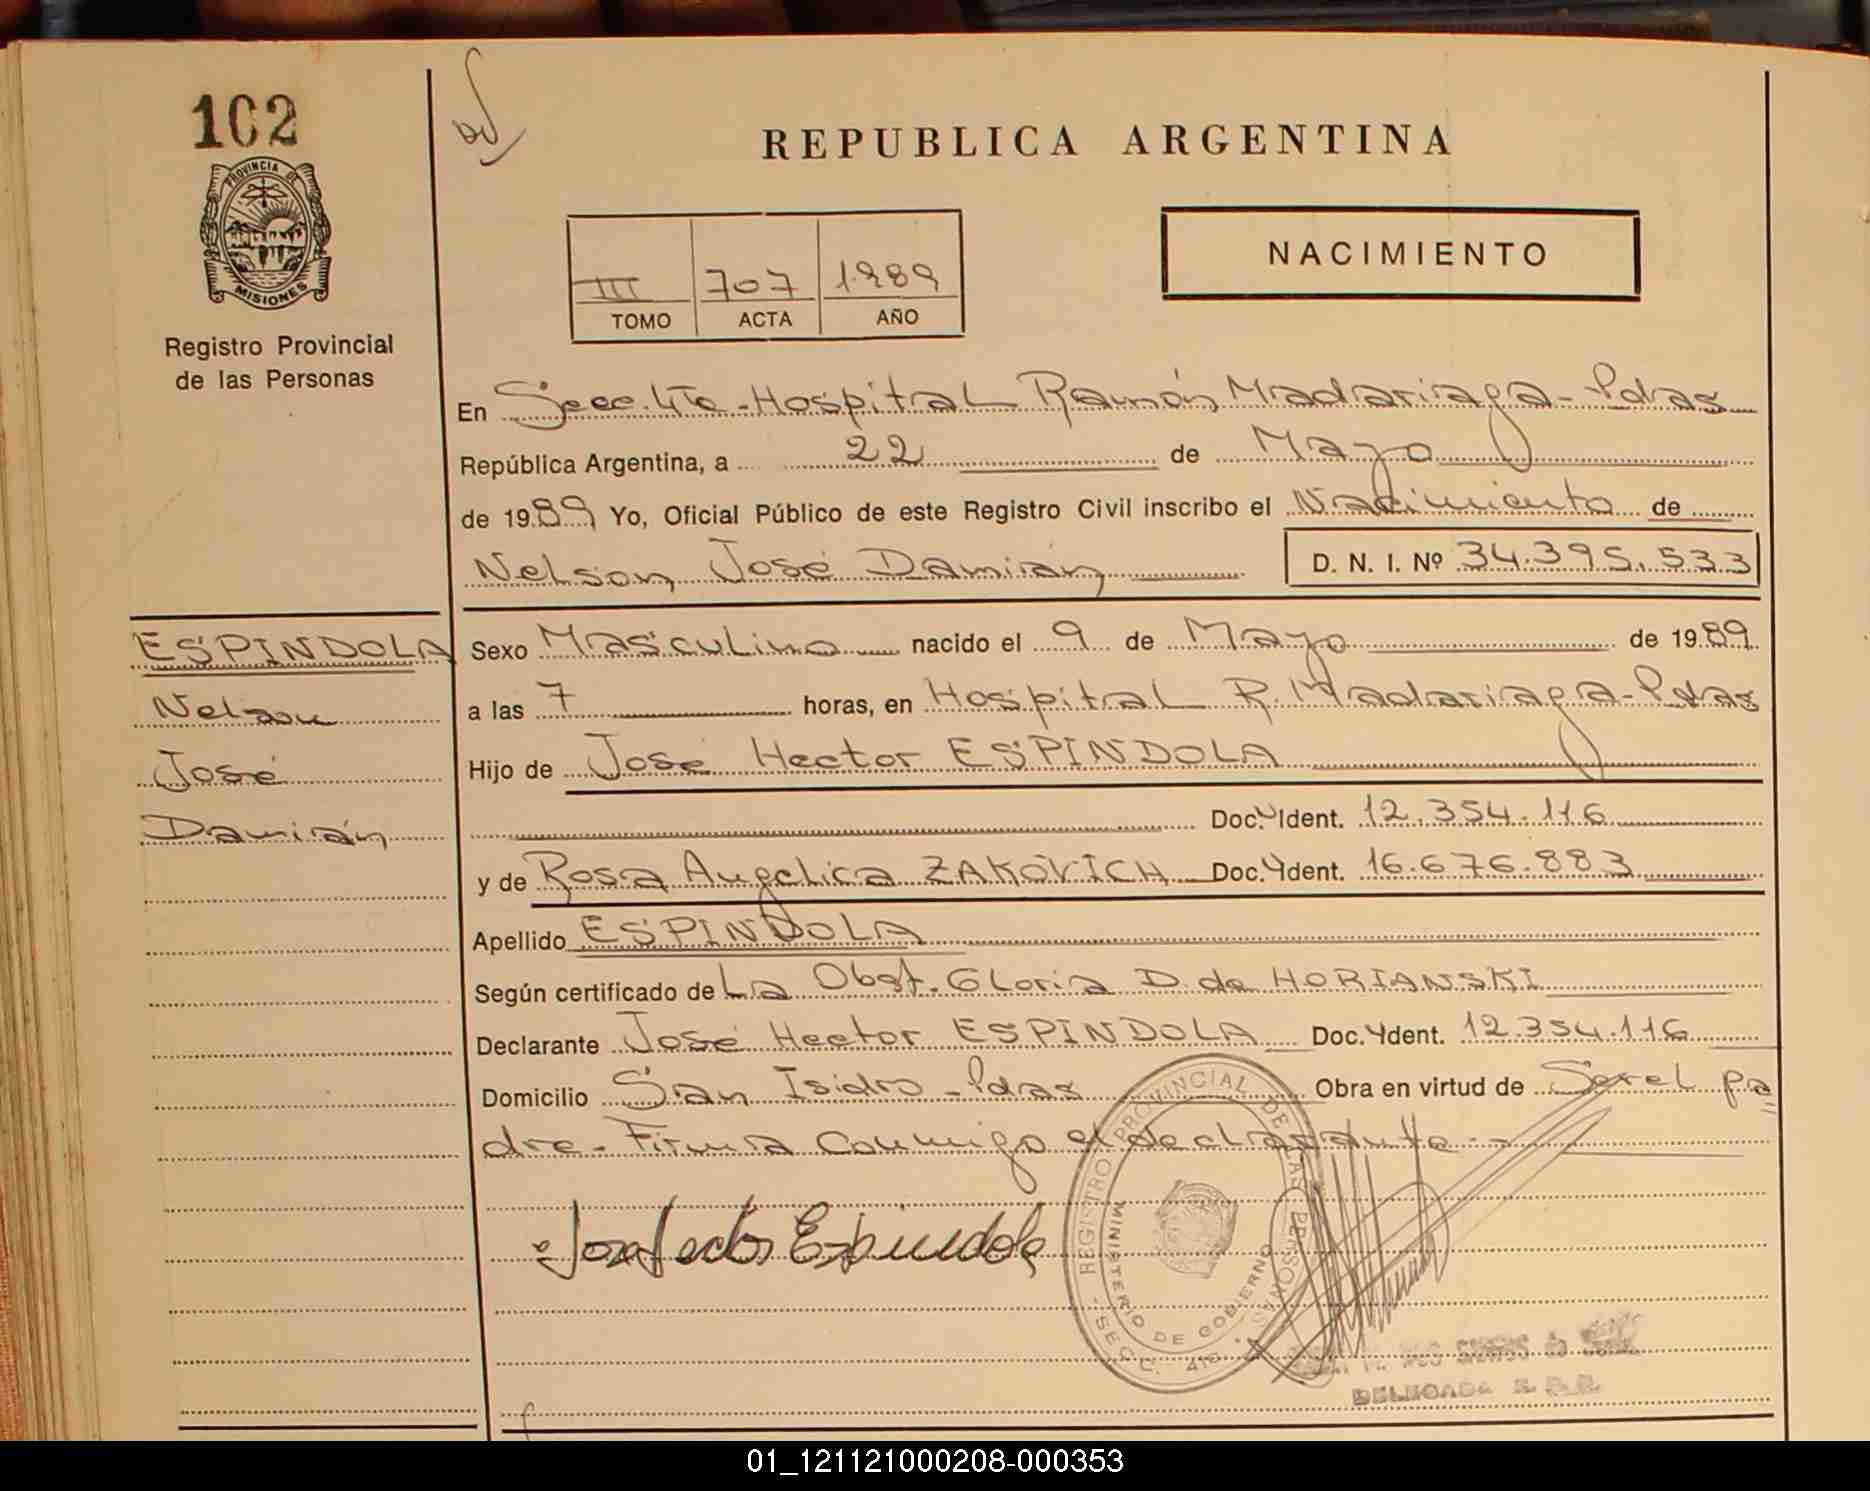 102
PROVINCIA DE
MISIONES
Registro Provincial
de las Personas
REPUBLICA ARGENTINA
NACIMIENTO
III 707 1989
TOMO ACTA AÑO
En Secc. 4Ta - Hospital Ramón Madariaga - Pdas
República Argentina, a 22 de Mayo
de 1989 Yo, Oficial Público de este Registro Civil inscribo el Nacimiento de
Nelson José Damián D. N. I. Nº 34.395.533
ESPINDOLA
Nelson
José
Damián
Sexo Masculino nacido el 9 de Mayo de 1989
a las 7 horas, en Hospital R. Madariaga - Pdas
Hijo de José Hector ESPINDOLA
Doc. Ident. 12.354.116
y de Rosa Angelica ZAKOVICH Doc. Ydent. 16.676.883
Apellido ESPINDOLA
Según certificado de La Obst. Gloria D. de HORIANSKI
Declarante José Hector ESPINDOLA Doc. Ydent. 12.354.116
Domicilio San Isidro - Pdas Obra en virtud de Ser el pa
dre - Firma Conmigo el declarante -
Jose Hector Espindola
REGISTRO PROVINCIAL DE LAS PERSONAS
MINISTERIO DE GOBIERNO
SECC. 4ta
DELEGADA
01_121121000208-000353